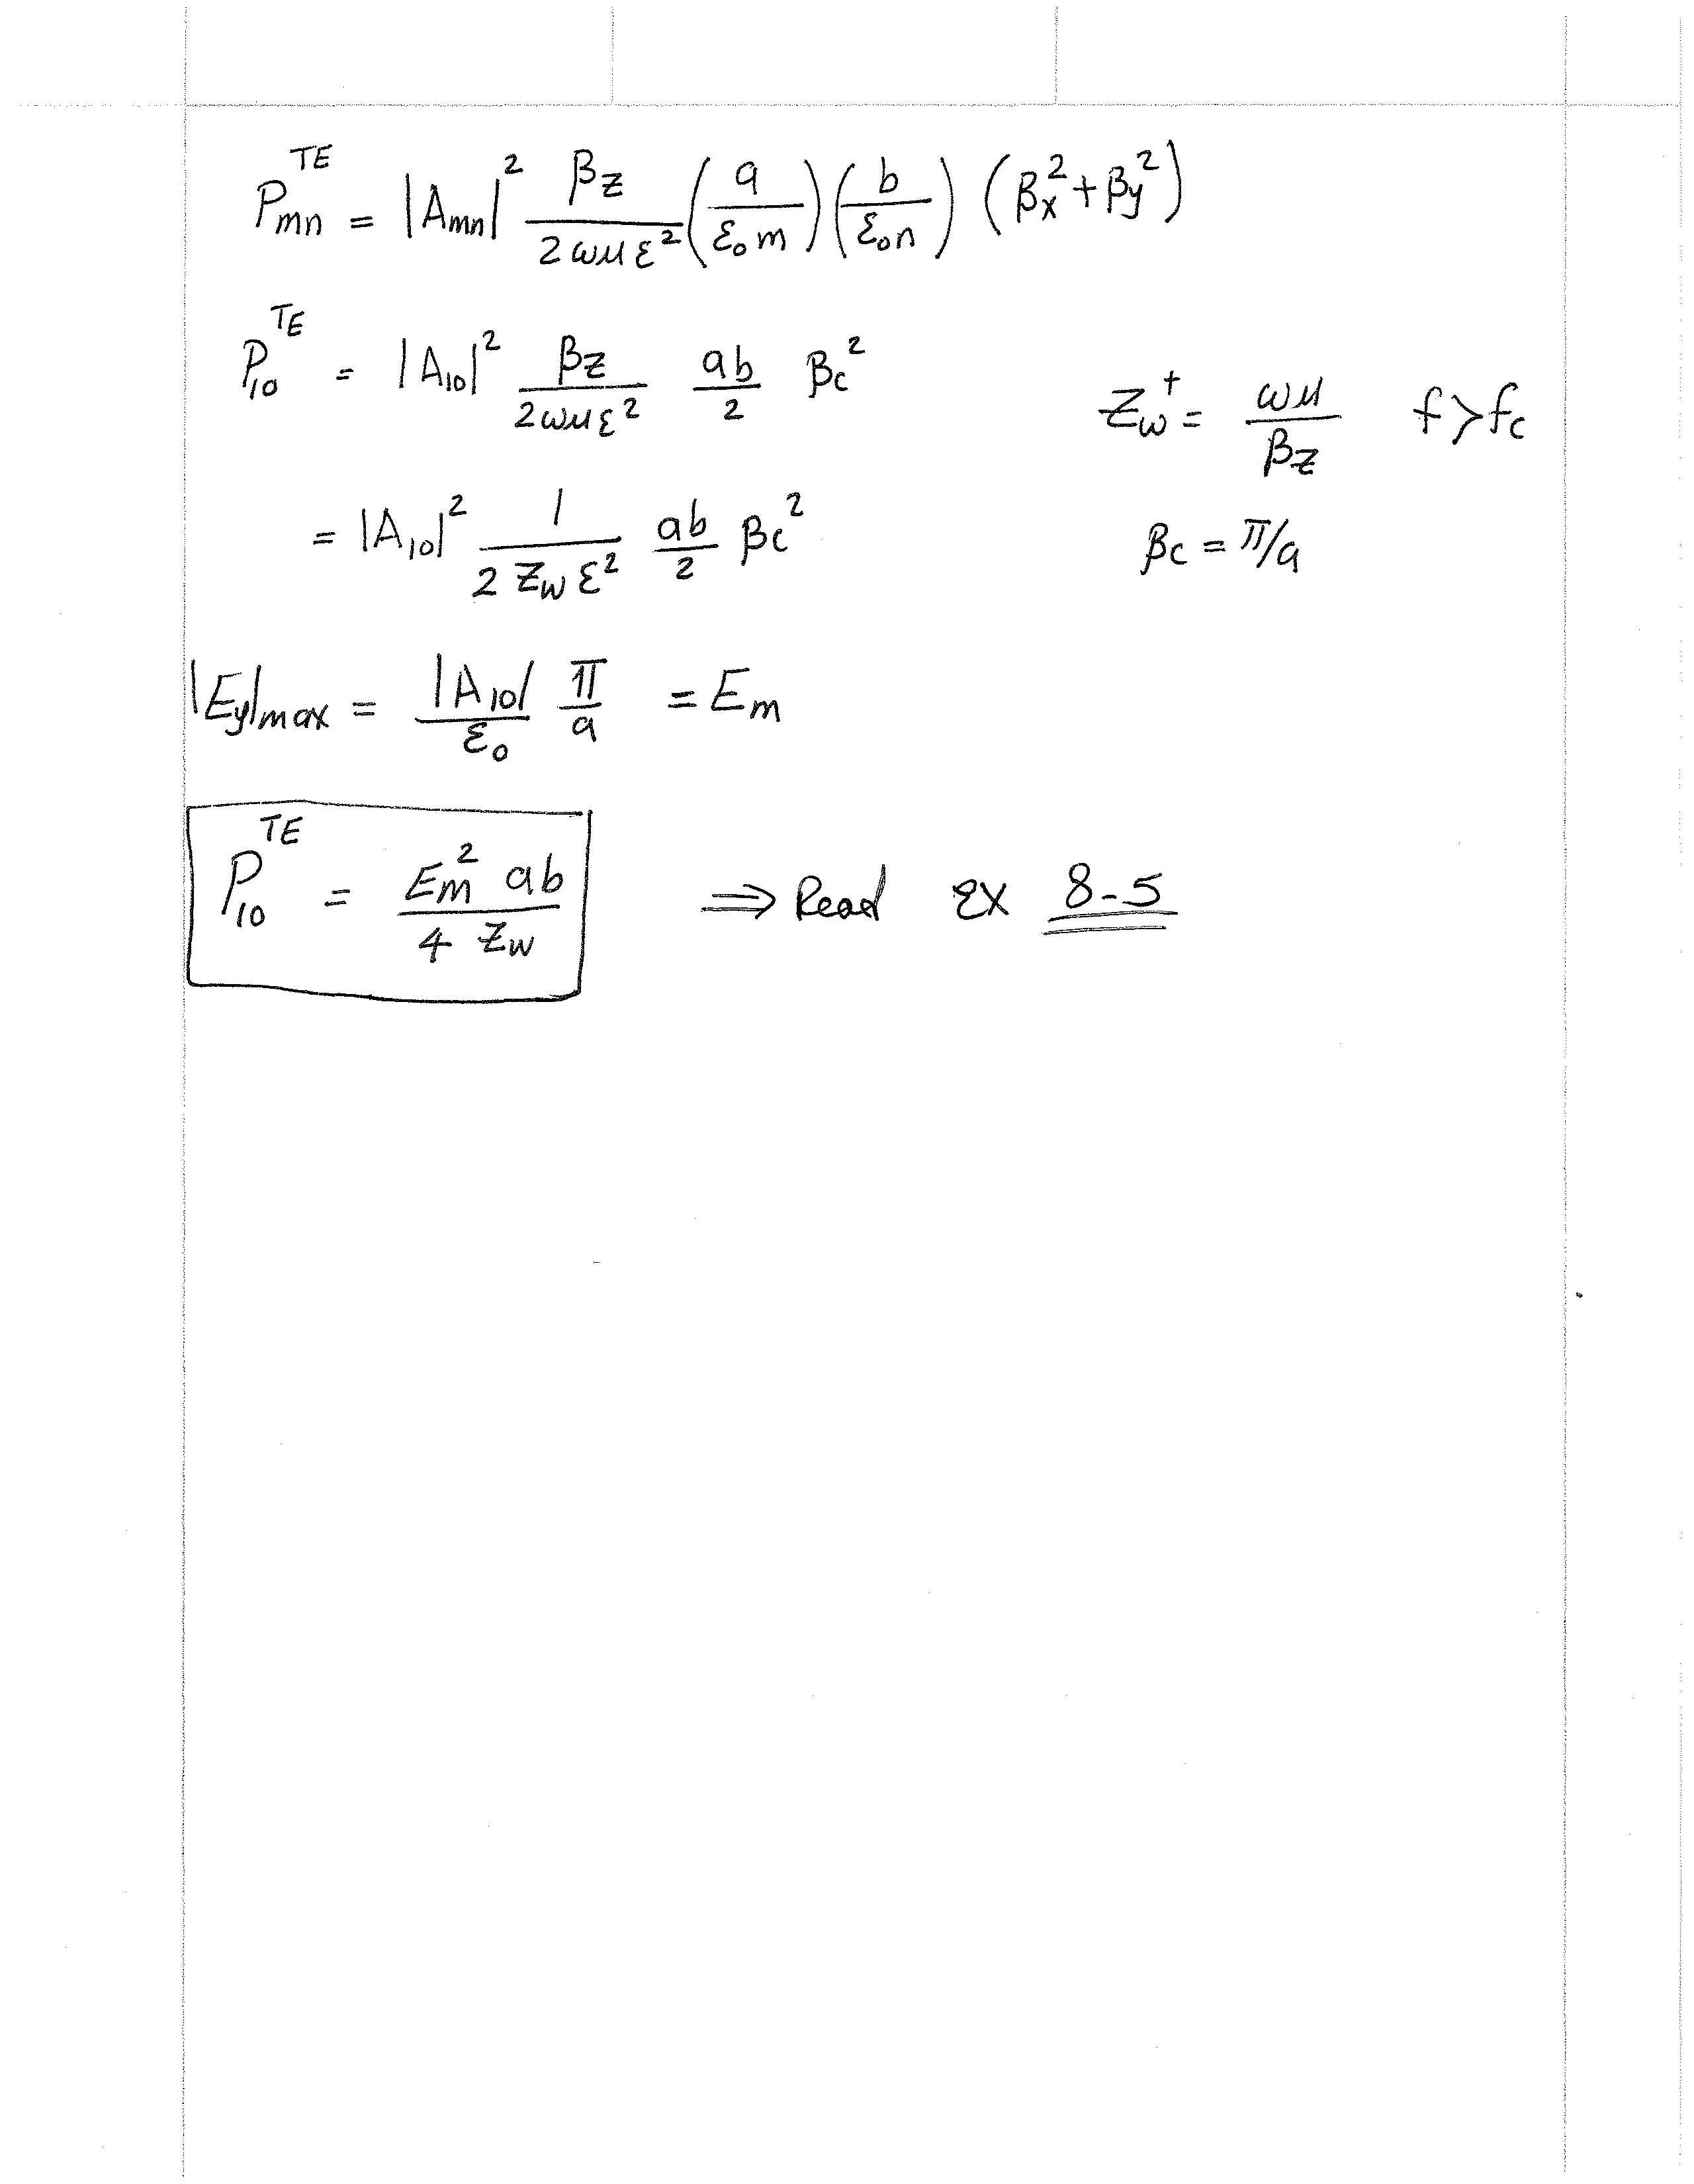 P_{mn}^{TE} = |A_{mn}|^2 \frac{β_z}{2ωμε^2} (\frac{a}{ε_{0m}}) (\frac{b}{ε_{0n}}) (β_x^2 + β_y^2)
P_{10}^{TE} = |A_{10}|^2 \frac{β_z}{2ωμε^2} \frac{ab}{2} β_c^2
Z_w^+ = \frac{ωμ}{β_z} f > f_c
= |A_{10}|^2 \frac{1}{2 Z_w ε^2} \frac{ab}{2} β_c^2
β_c = π/a
|E_y|_{max} = \frac{|A_{10}|}{ε_0} \frac{π}{a} = E_m
P_{10}^{TE} = \frac{E_m^2 ab}{4 Z_w} ⇒ Read Ex 8-5